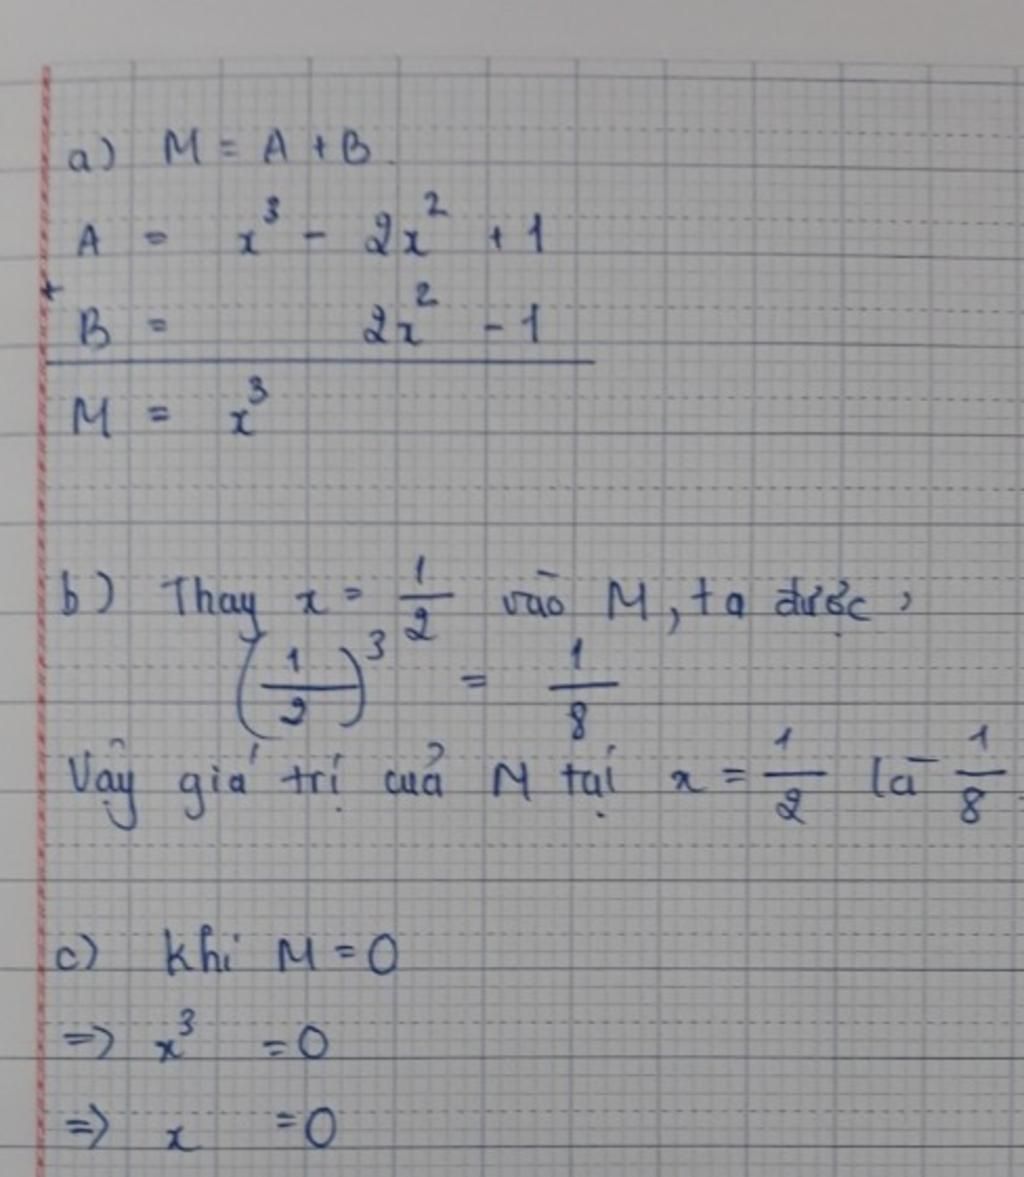 a) M = A + B
A = x³ - 2x² + 1
+
B = 2x² - 1
M = x³
b) Thay x = 1/2 vào M, ta được,
(1/2)³ = 1/8
Vậy giá trị cuả M tại x = 1/2 là 1/8.
c) Khi M = 0
=> x³ = 0
=> x = 0